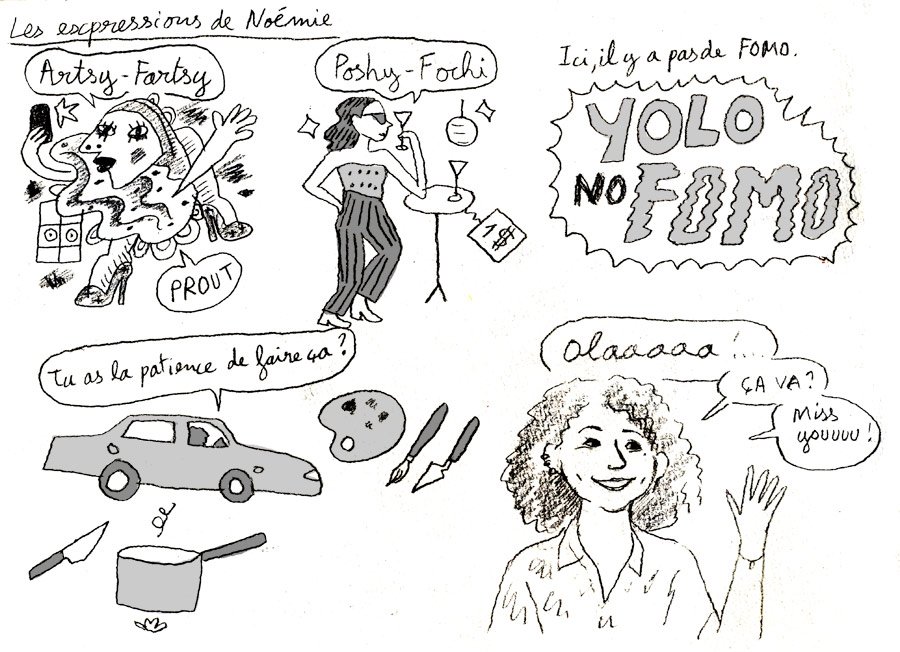 Les expressions de Noémie
Artsy-Fartsy
Poshy-Fochi
Ici, il y a pas de FOMO.
YOLO
NO FOMO
1$
PROUT
Tu as la patience de faire ça?
Olaaaaaa !...
ÇA VA?
Miss
youuuu!